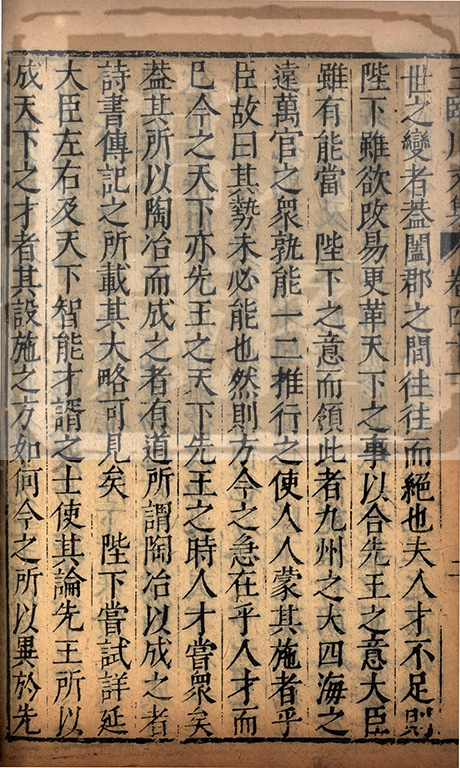 世之變者蓋闔郡之間往往而絕也夫人才不足則
陛下雖欲改易更革天下之事以合先王之意大臣
雖有能當　陛下之意而領此者九州之大四海之
遠萬官之衆孰能一二推行之使人人蒙其施者乎
臣故曰其勢未必能也然則方今之急在乎人才而
已今之天下亦先王之天下先王之時人才嘗衆矣
蓋其所以陶冶而成之者有道所謂陶冶以成之者
詩書傳記之所載其大略可見矣　陛下嘗試詳延
大臣左右及天下智能才諝之士使其論先王所以
成天下之才者其設施之方如何今之所以異於先